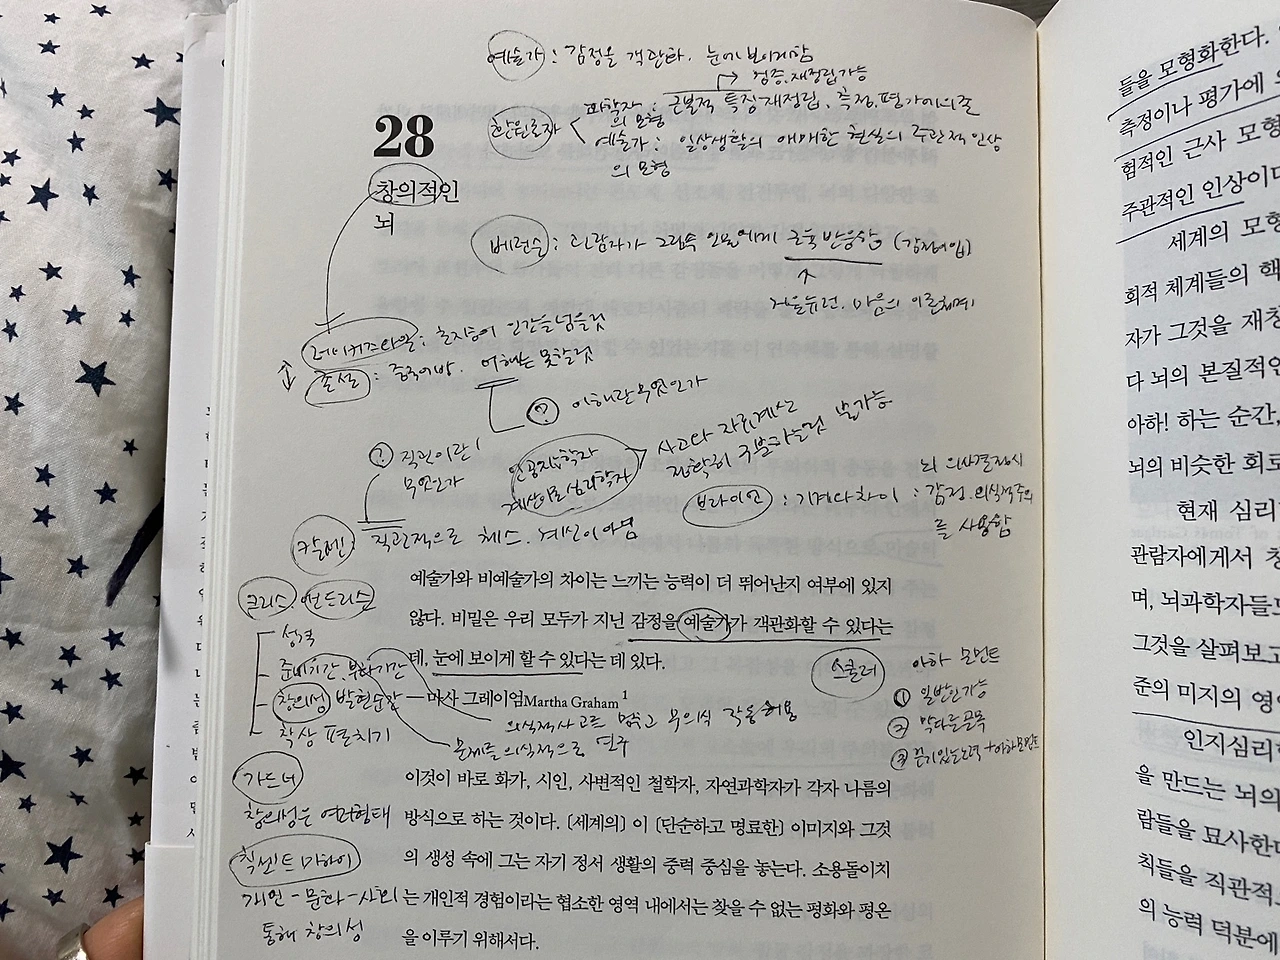 예술가 : 감정을 객관화. 눈에 보이게함
검증.재정립가능
과학자 : 근본적 특징 재정립, 측정.평가에의존
의 모형
환원론자
예술가 : 일상생활의 애매한 현실의 주관적 인상
의 모형
28
창의적인
뇌
베런슨 : 관람자가 그림속 인물에게 근육 반응상 (감정이입)
거울뉴런. 마음의 이론체계
레이커즈와일 : 초지능이 인간을 넘을것
존설 : 중국어방. 이해는 못할것
? 이해란 무엇인가
? 직관이란
무엇인가
인공지능학자
계산이론 심리학자
사고와 자리계산
정확히 구분하는것 불가능
브라이언 : 기계와 차이 : 뇌 의사결정시
감정.의식적주의
를 사용함
카슬렌
직관적으로 체스. 계산이 아님
예술가와 비예술가의 차이는 느끼는 능력이 더 뛰어난지 여부에 있지
않다. 비밀은 우리 모두가 지닌 감정을 예술가가 객관화할 수 있다는
데, 눈에 보이게 할 수 있다는 데 있다.
— 마사 그레이엄Martha Graham¹
크리스.앤드리슨
성격
준비기간, 부화기간
창의성 발현순간
착상 펼치기
의식적사고를 멈추고 무의식 작동 허용
문제를 의식적으로 연구
스쿨러
아하 모먼트
① 일반인가능
② 막다른골목
③ 끈기있는노력+아하모먼트
가드너
창의성은 여러형태
칙센트 마하이
개인 - 문화 - 사회
통해 창의성
이것이 바로 화가, 시인, 사변적인 철학자, 자연과학자가 각자 나름의
방식으로 하는 것이다. [세계의] 이 [단순하고 명료한] 이미지와 그것
의 생성 속에 그는 자기 정서 생활의 중력 중심을 놓는다. 소용돌이치
는 개인적 경험이라는 협소한 영역 내에서는 찾을 수 없는 평화와 평온
을 이루기 위해서다.
들을 모형화한다.
측정이나 평가에
험적인 근사 모형
주관적인 인상이다
세계의 모형
회적 체계들의 핵
자가 그것을 재창
다 뇌의 본질적인
아하! 하는 순간,
뇌의 비슷한 회로
현재 심리
관람자에게서 창
며, 뇌과학자들
그것을 살펴보고
준의 미지의 영
인지심리학
을 만드는 뇌의
람들을 묘사한다
칙들을 직관적
의 능력 덕분에